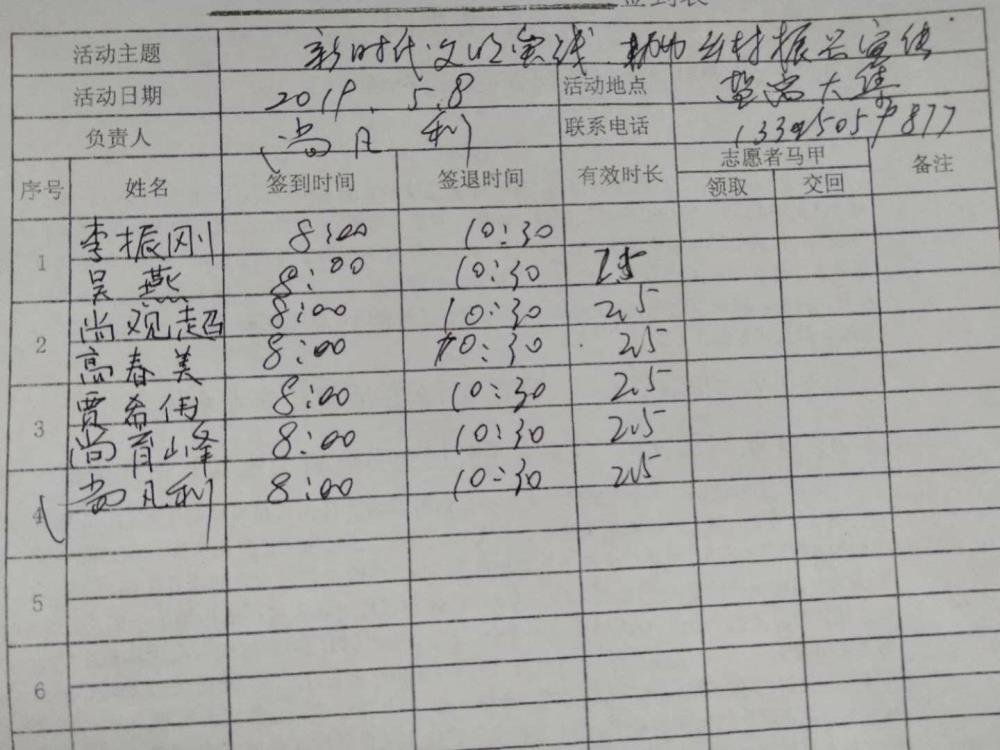 签到表
活动主题 新时代文明实践 助力乡村振兴宣传
活动日期 2019.5.8 活动地点 大集
负责人 尚凡利 联系电话
序号 姓名 签到时间 签退时间 有效时长 志愿者马甲 备注
领取 交回
1 李振刚 8:00 10:30
吴燕 8:00 10:30 2.5
2 尚观超 8:00 10:30 2.5
高春美 8:00 10:30 2.5
3 贾希伟 8:00 10:30 2.5
尚育峰 8:00 10:30 2.5
4 尚凡利 8:00 10:30 2.5
5
6